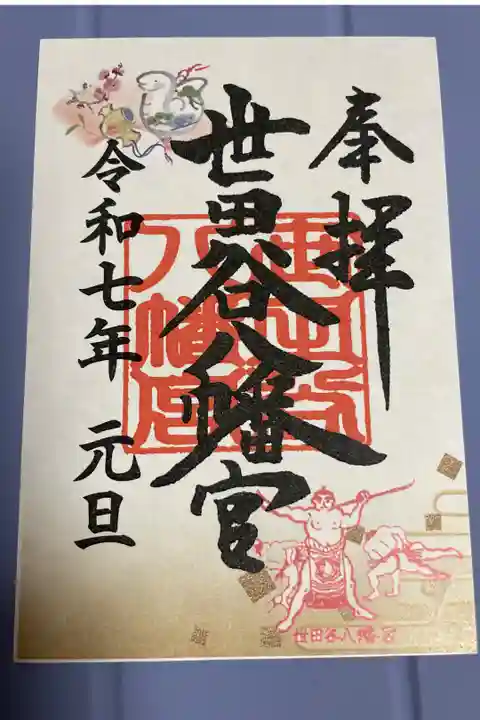 奉拝
世田谷八幡宮
令和七年 元旦
世田谷八幡宮